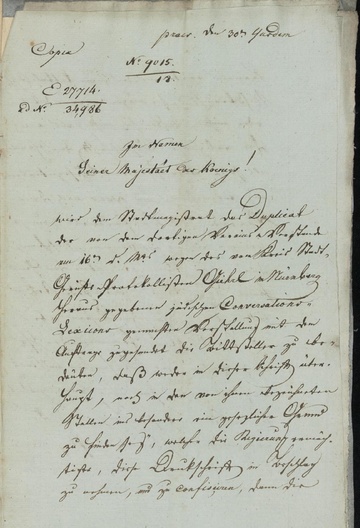 praes. den 30n
Copia
No. 9015.
13.
E 27714.
Ed No. 34986
Im Namen
Seiner Majestaet des Koenigs!
wird dem Stadtmagistrat das Duplicat
der von dem dortigen Vereins Vorstande
am 16n d. Mts wegen des vom Kreis Stadt-
Gerichts-Protokollisten in Nürnberg
heraus gegebenen jüdischen Conversations-
Lexicons gemachten Vorstellung mit dem
Auftrage zugesendet die Bittsteller zu be-
deuten, daß weder in dieser Schrift über-
haupt, noch in den von ihnen bezeichneten
Stellen insbesondere ein gesetzlicher Grund
zu finden sey, welcher die Regierung ermäch-
tigte, diese Druckschrift in Beschlag
zu nehmen, und zu confisciren, denn die